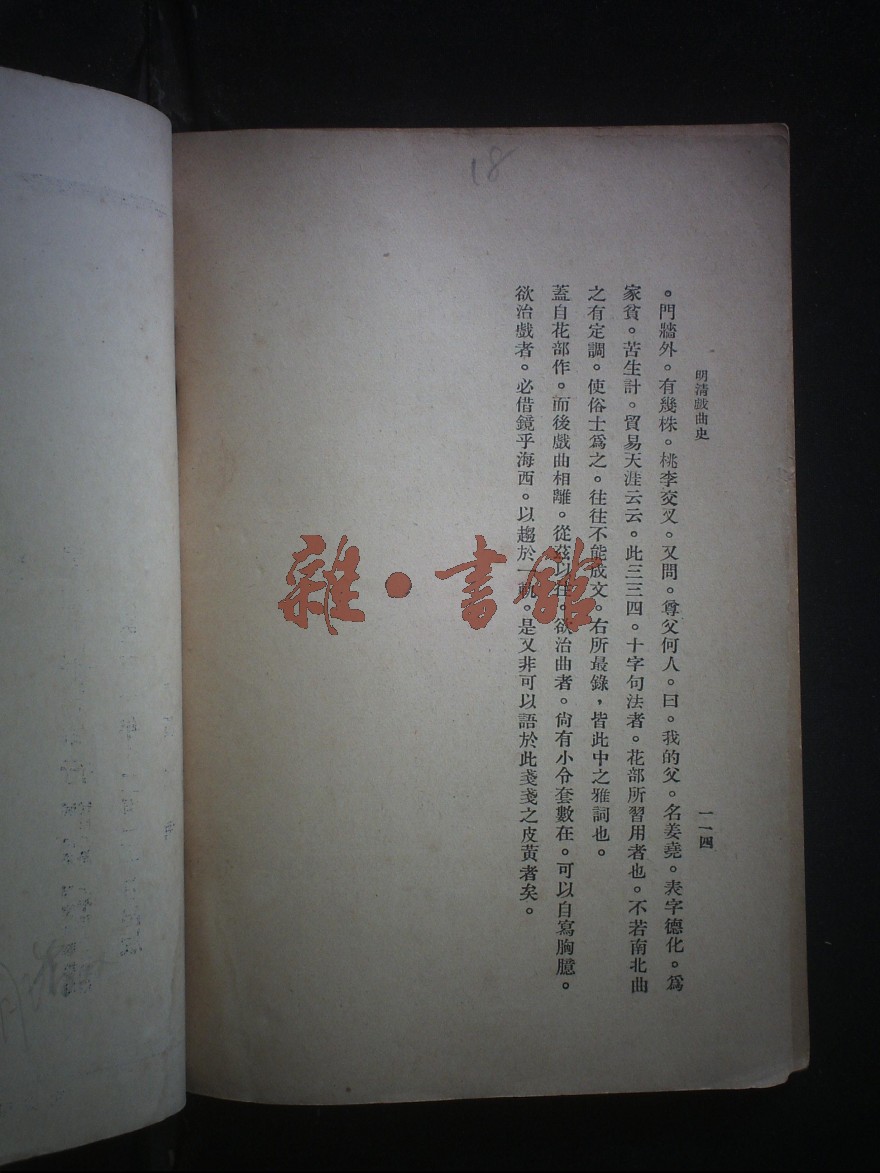 18
明清戲曲史
一一四
。門牆外。有幾株。桃李交叉。又問。尊父何人。曰。我的父。名姜堯。表字德化。爲
家貧。苦生計。貿易天涯云云。此三三四。十字句法者。花部所習用者也。不若南北曲
之有定調。使俗士爲之。往往不能成文。右所最錄，皆此中之雅詞也。
蓋自花部作。而後戲曲相離。從茲以往。欲治曲者。尙有小令套數在。可以自寫胸臆。
欲治戲者。必借鏡乎海西。以趨於一軌。是又非可以語於此戔戔之皮黃者矣。
雜·書館